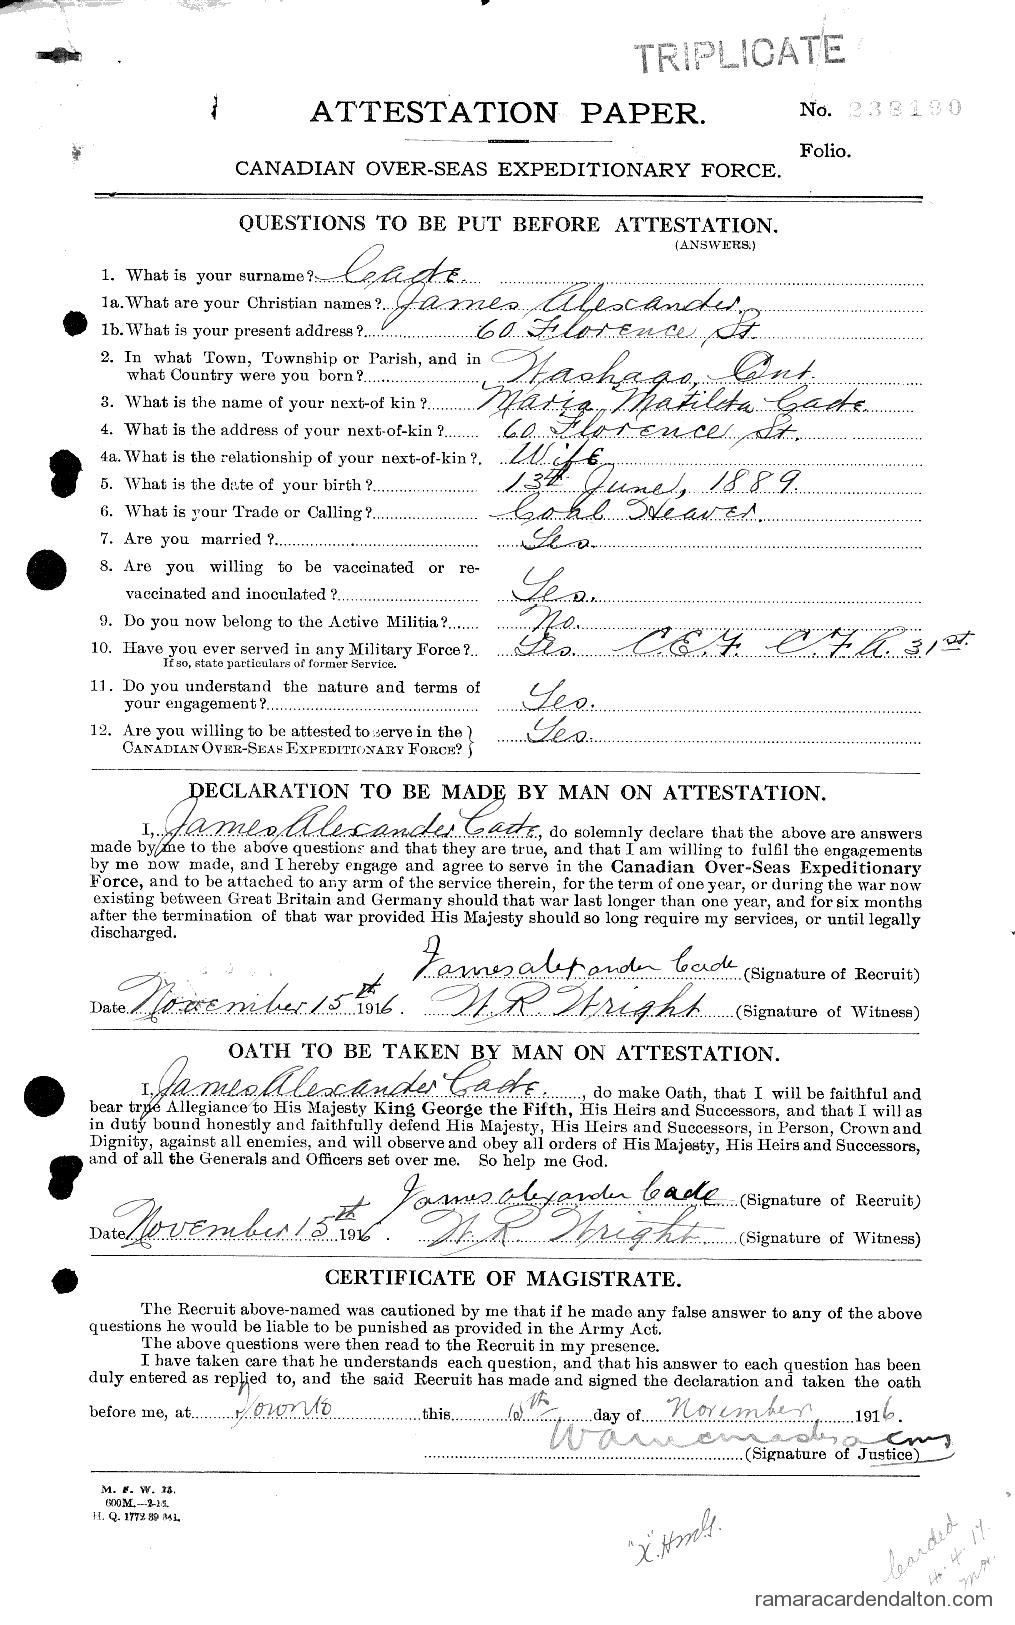 TRIPLICATE
ATTESTATION PAPER.
No.
Folio.
CANADIAN OVER-SEAS EXPEDITIONARY FORCE.
QUESTIONS TO BE PUT BEFORE ATTESTATION.
(ANSWERS.)
1. What is your surname? Cade
1a. What are your Christian names? James Alexander
1b. What is your present address? 60 Florence St.
2. In what Town, Township or Parish, and in
what Country were you born? Washago, Ont.
3. What is the name of your next-of kin? Maria Matilda Cade
4. What is the address of your next-of-kin? 60 Florence St.
4a. What is the relationship of your next-of-kin? Wife
5. What is the date of your birth? 13th June, 1889.
6. What is your Trade or Calling? Coal Heaver.
7. Are you married? Yes.
8. Are you willing to be vaccinated or re-
vaccinated and inoculated? Yes.
9. Do you now belong to the Active Militia? No.
10. Have you ever served in any Military Force? Yes. C.E.F. C.F.A. 31st.
If so, state particulars of former Service.
11. Do you understand the nature and terms of
your engagement? Yes.
12. Are you willing to be attested to serve in the
CANADIAN OVER-SEAS EXPEDITIONARY FORCE? Yes.
DECLARATION TO BE MADE BY MAN ON ATTESTATION.
I, James Alexander Cade, do solemnly declare that the above are answers
made by me to the above questions and that they are true, and that I am willing to fulfil the engagements
by me now made, and I hereby engage and agree to serve in the Canadian Over-Seas Expeditionary
Force, and to be attached to any arm of the service therein, for the term of one year, or during the war now
existing between Great Britain and Germany should that war last longer than one year, and for six months
after the termination of that war provided His Majesty should so long require my services, or until legally
discharged.
James Alexander Cade (Signature of Recruit)
Date November 15th 1916. W. R. Wright (Signature of Witness)
OATH TO BE TAKEN BY MAN ON ATTESTATION.
I, James Alexander Cade, do make Oath, that I will be faithful and
bear true Allegiance to His Majesty King George the Fifth, His Heirs and Successors, and that I will as
in duty bound honestly and faithfully defend His Majesty, His Heirs and Successors, in Person, Crown and
Dignity, against all enemies, and will observe and obey all orders of His Majesty, His Heirs and Successors,
and of all the Generals and Officers set over me. So help me God.
James Alexander Cade (Signature of Recruit)
Date November 15th 1916. W. R. Wright (Signature of Witness)
CERTIFICATE OF MAGISTRATE.
The Recruit above-named was cautioned by me that if he made any false answer to any of the above
questions he would be liable to be punished as provided in the Army Act.
The above questions were then read to the Recruit in my presence.
I have taken care that he understands each question, and that his answer to each question has been
duly entered as replied to, and the said Recruit has made and signed the declaration and taken the oath
before me, at Toronto this day of November 1916.
(Signature of Justice)
M. F. W. 23.
600M.—2-15.
H. Q. 1772 39
"X" HMG.
Carded
ramaracardendalton.com